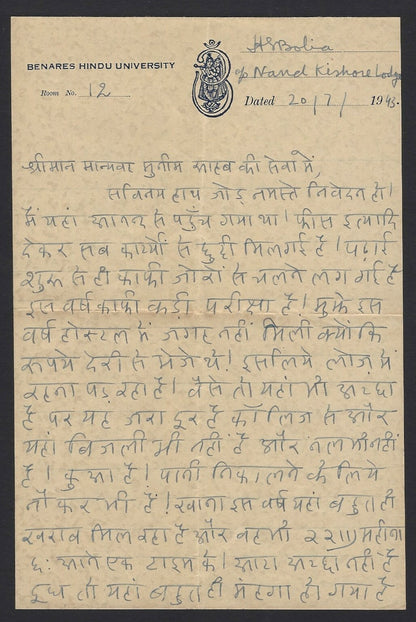 H S Bolia
c/o Nand Kishore Lodge
BENARES HINDU UNIVERSITY
Room No. 12
Dated 20/7/ 1943.
श्रीमान मान्यवर मुनीम साहब की सेवा में,
सविनय हाथ जोड़ नमस्ते निवेदन है।
मैं यहां आनन्द से पहुँच गया था। फीस इत्यादि
देकर सब कार्यो से छुट्टी मिल गई है। पढाई
शुरू से ही काफी जोरों से चलने लग गई है
इस वर्ष काफी कड़ी परीक्षा है। मुझे इस
वर्ष होस्टल में जगह नहीं मिली क्यों कि
रूपये देरी से भेजे थे। इसलिये लोज में
रहना पड़ रहा है। वैसे तो यहां भी अच्छा
है पर यह जरा दूर है कॉलिज से और
यहां बिजली भी नहीं है और नल भी नहीं
है। कुआ है। पानी निकालने के लिये
नौकर भी है। खाना इस वर्ष यहां बहुत ही
खराब मिल रहा है और वह भी महीना
छः आने एक टाइम के। आटा अच्छा नहीं है
दूध तो यहां बहुत ही मंहगा हो गया है